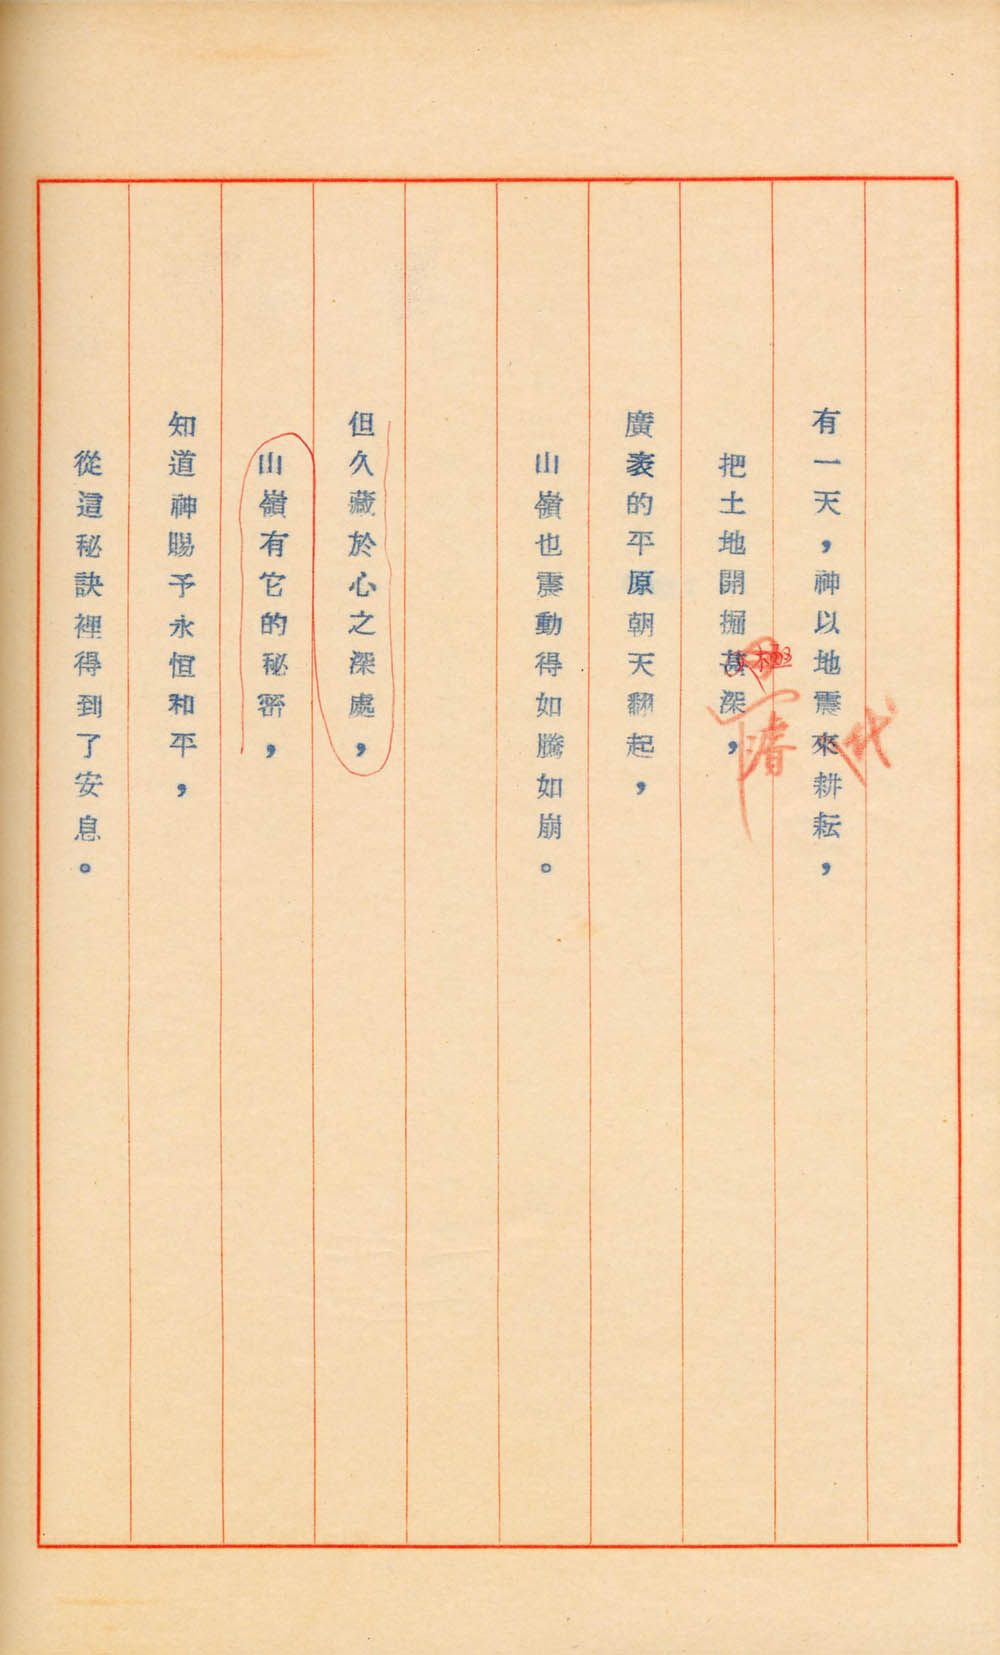 有一天，神以地震來耕耘，
把土地開掘甚深，
極
廣袤的平原朝天翻起，
山嶺也震動得如騰如崩。
但久藏於心之深處，
山嶺有它的秘密，
知道神賜予永恒和平，
從這秘訣裡得到了安息。